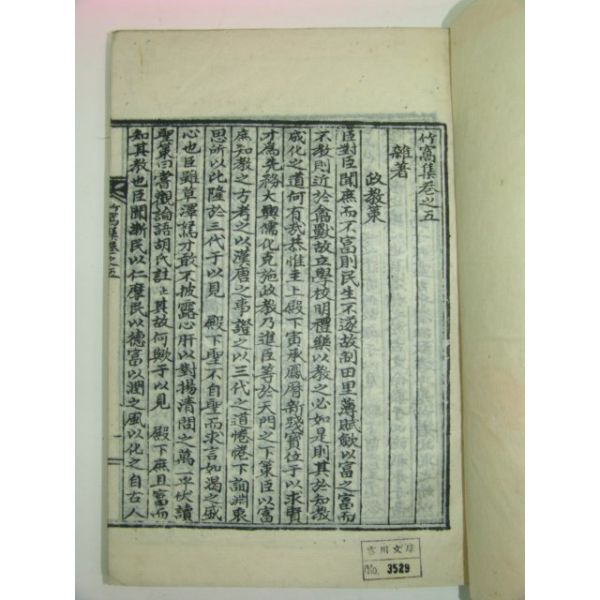 竹窩集卷之五
雜著
政敎策
臣對臣聞庶而不富則民生不遂故制田里薄賦斂以富之富而
不敎則近於禽獸故立學校明禮樂以敎之必如是則其於知敎
成化之道何有哉恭惟主上殿下寅承鳳曆新踐寶位于以求賢
才爲先務大興儒化克施政敎乃進臣等於天門之下策臣以富
庶知敎之方考之以漢唐之事證之以三代之道惓惓下詢淵衷
思所以比隆於三代于以見 殿下聖不自聖而求言如渴之盛
心也臣雖草澤駑才敢不披露心肝以對揚淸問之萬一乎伏讀
聖策曰嘗觀論語胡氏註止其故何歟于以見 殿下庶且富而
知其敎也臣聞漸民以仁摩民以德富以潤之風以化之自古人
竹窩集卷之五
一
雲川文庫
No. 3529